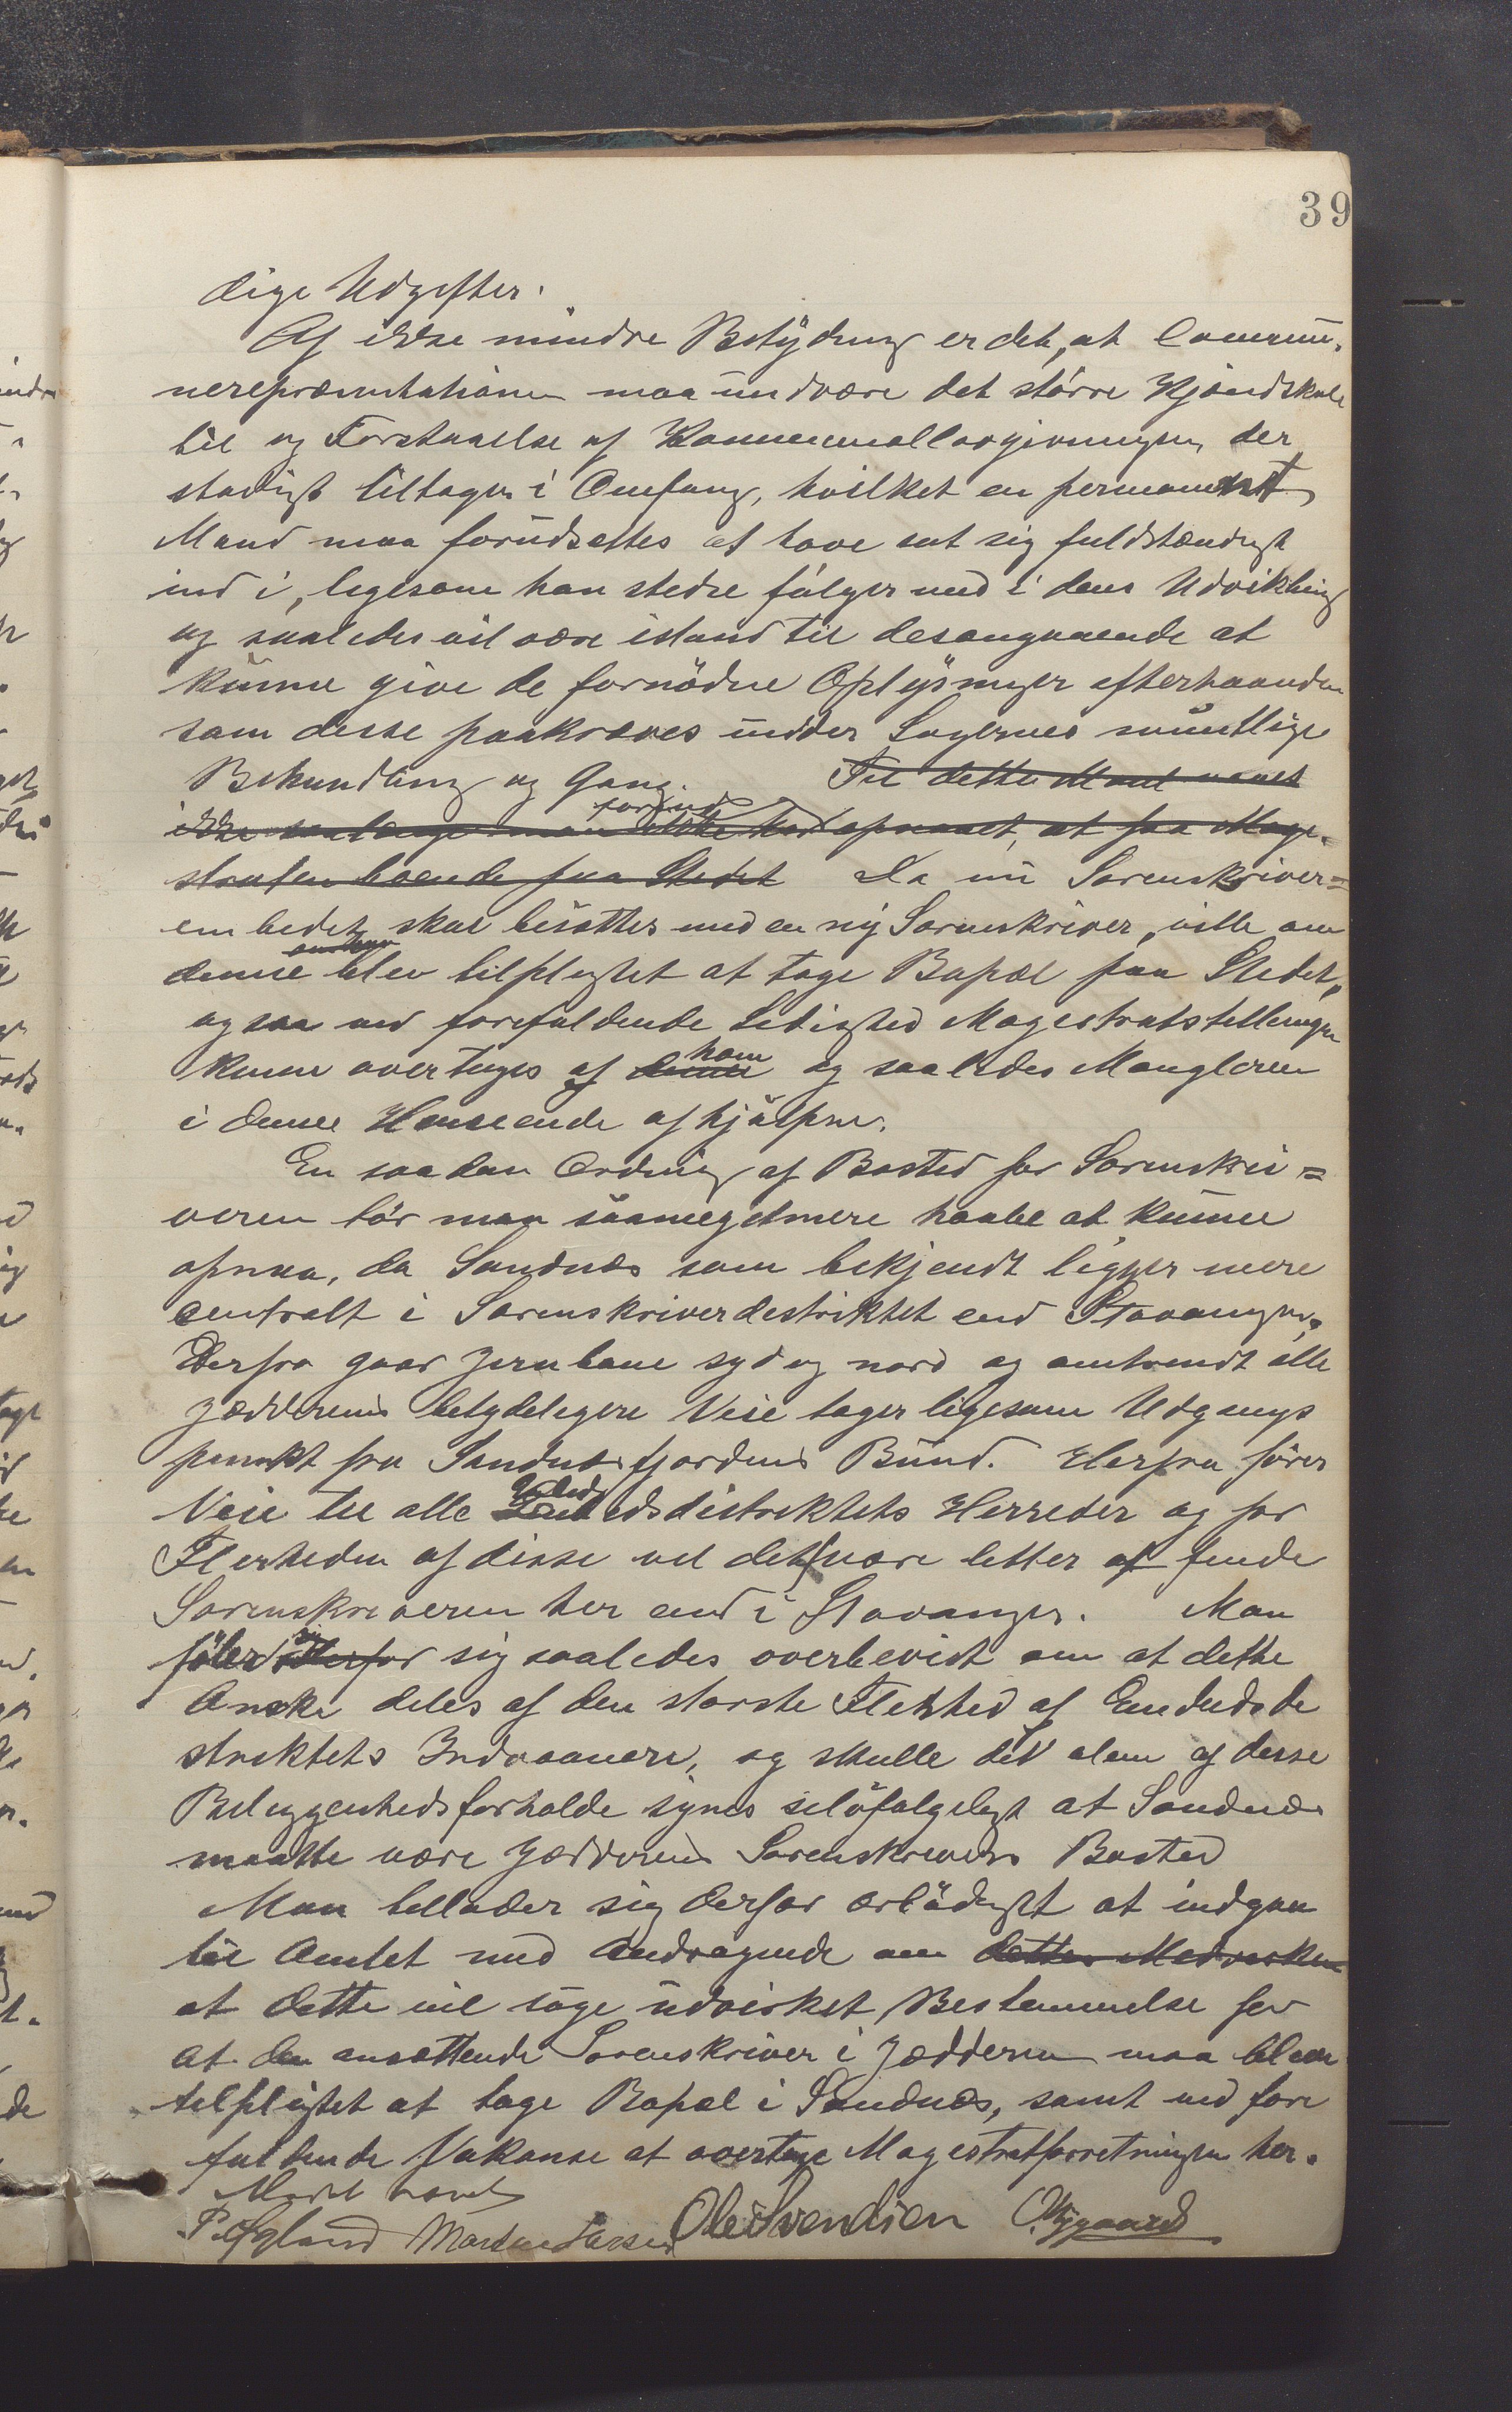 39
dige Udgifter.
Af ikke mindre Betydning er det, at Commu-
nerepræsentationen maa undvære det större Kjendskab
til og Forstaaelse af Kommunallovgivningen, der
stadigt tiltager i Omfang, hvilket en permanent
Mand maa forudsættes at have sat sig fuldstændigt
ind i, ligesom han stedse fölger med i dens Udvikling
og saaledes vil være istand til desangaaende at
kunne give de fornödne Oplysninger efterhaanden
som disse paakræves under Sagernes mundtlige
Behandling og Gang. Til dette Maal naaes
ikke saalænge man ikke har forinden opnaaet, at faa Magi-
straten boende paa Stedet Da nu Sorenskriver=
embedet skal besættes med en ny Sorenskriver, vilde om
denne blev tilpligtet at tage Bopæl paa Stedet,
ogsaa ved forefaldende Ledighed Magistratstillingen
kunne overtages af denne ham og saaledes Manglerne
i denne Henseende afhjælpne.
En saadan Ordning af Bosted for Sorenskri=
veren tör man saameget mere haabe at kunne
opnaa, da Sandnæs som bekjendt ligger mere
centralt i Sorenskriverdistriktet end Stavanger.
Derfra gaar Jernbane syd og nord og omtrendt alle
Jædderens betydeligere Veie tager ligesom Udgangs
punkt fra Sandnæsfjordens Bund. Herfra förer
Veie til alle Embedsdistriktets Herreder og for
Flerheden af disse vil det være letter at finde
Sorenskriveren her end i Stavanger. Man
föler derfor sig saaledes overbevist om at dette
Önske deles af den störste Flerhed af Embedsdi
striktets Indvaanere, og skulle det alene af disse
Beliggenhedsforholde synes selvfölgeligt at Sandnæs
maatte være Jædderens Sorenskrivers Bosted
Man tillader sig derfor ærbödigst at indgaa
til Amtet med Andragende om dettes Medvirken
at dette vil söge udvirket Bestemmelse for
at den ansættende Sorenskriver i Jædderen maa blive
tilpligtet at tage Bopæl i Sandnæs, samt ved fore
faldende Vakanse at overtage Magistratforretningen her.
Mödet hævet
P. Øgland Morten Larsen Ole Svendsen O. Nygaard